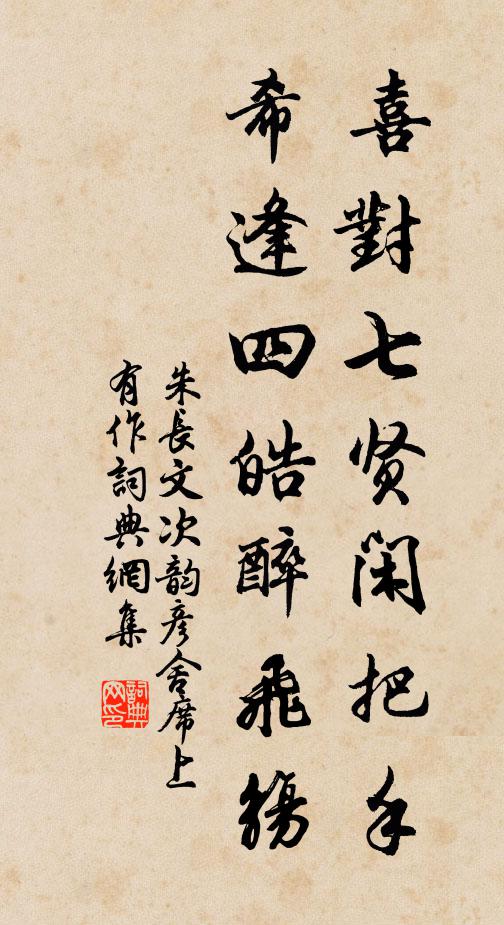 喜對七贤閑把手
希逢四皓醉飛觴
朱長文次韵彦舍席上
有作詞典網集
詞典网印